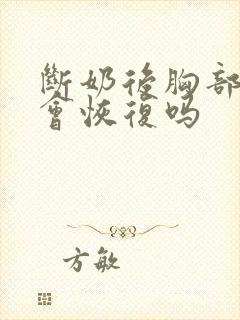 斷奶後胸部
會恢復嗎
方敏